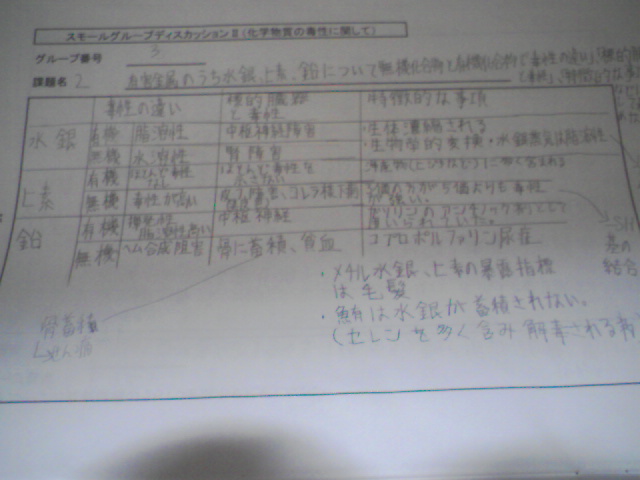 スモールグループディスカッションⅡ(化学物質の毒性に関して)
グループ番号 3
課題名 2 有害金属のうち水銀、ヒ素、鉛について無機化合物と有機化合物で毒性の違い、標的
毒性の違い 標的臓器と毒性 特徴的な事項
水銀 有機 脂溶性 中枢神経障害 ・生体濃縮される
無機 水溶性 腎障害 ・生物学的変換・水銀蒸気は脂溶性
ヒ素 有機 ほとんど毒性なし ほとんど毒性を 海産物(ヒジキなど)に多く含まれる
無機 毒性が高い 障害、コレラ様下痢 3価の方が5価よりも毒性が強い。
鉛 有機 脂溶性高い 中枢神経 ガソリンのアンチノック剤として
無機 ヘム合成障害 骨に蓄積、貧血 コプロポルフィリン尿症
SH基の結合
・メチル水銀、ヒ素の暴露指標
は毛髪
・鮪は水銀が蓄積されない。
(セレンを多く含み解毒される為
骨蓄積